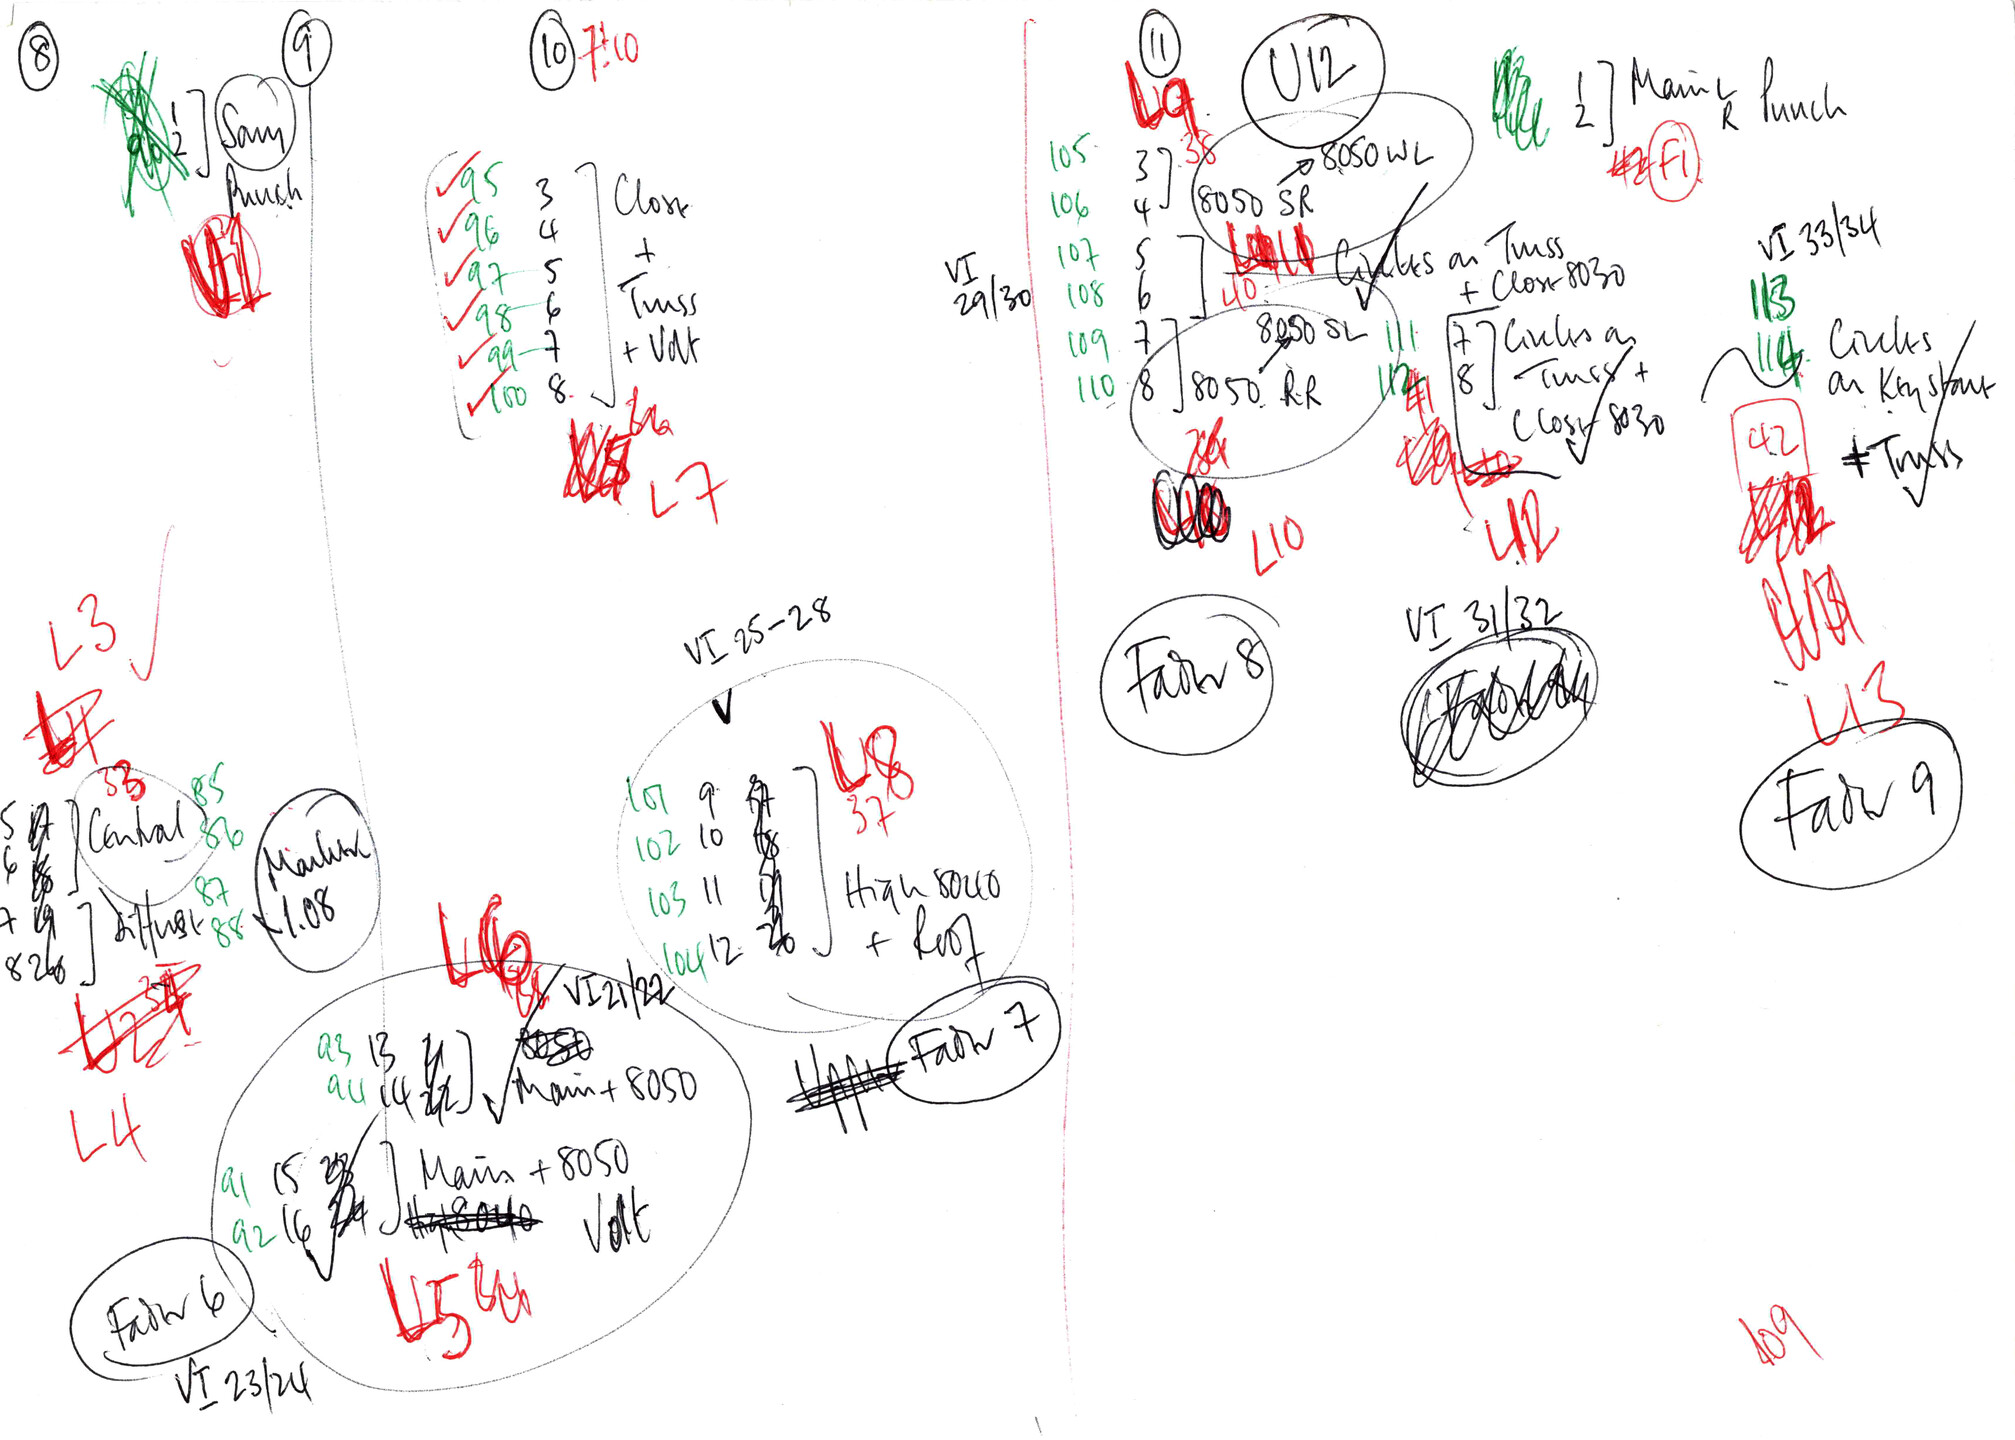 8
1
2
Sam
Punch
9
10
7:10
95 3
96 4
97 5
98 6
99 7
100 8
Close
+
Truss
+ Volt
L7
L3
33
5
6
Central
85
86
7
8
Diffuse
87
88
L4
Marker
1.08
L6
VI 21/22
93 13
94 14
Main + 8050
91 15
92 16
Main + 8050
Volt
L5 34
Fader 6
VI 23/24
VI 25-28
L8
37
101 9
102 10
103 11
104 12
High 8040
+ Roof
Fader 7
11
L9
U12
105 3
106 4
38
8050 WL
8050 SR
VI
29/30
107 5
108 6
40
Circles on Truss
+ Close 8030
109 7
110 8
8050 SL
8050 RR
L10
Fader 8
1
2
Main L
R
Punch
F1
111 7
112 8
Circles on
Truss +
Close 8030
41
L12
VI 31/32
VI 33/34
113
114
Circles
on Keystone
+ Truss
42
L13
Fader 9
109